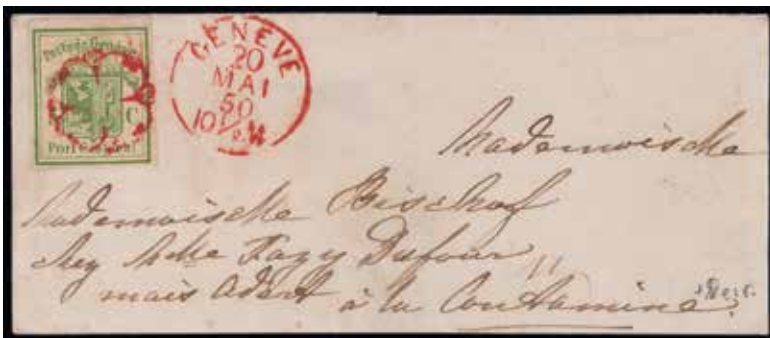 Poste de Genève
C
Port Cantonal
GENEVE
20
MAI
50
10
M
Mademoiselle
Mademoiselle Bischof
chez Mlle Fazy Dufour
mais
à la Contamine